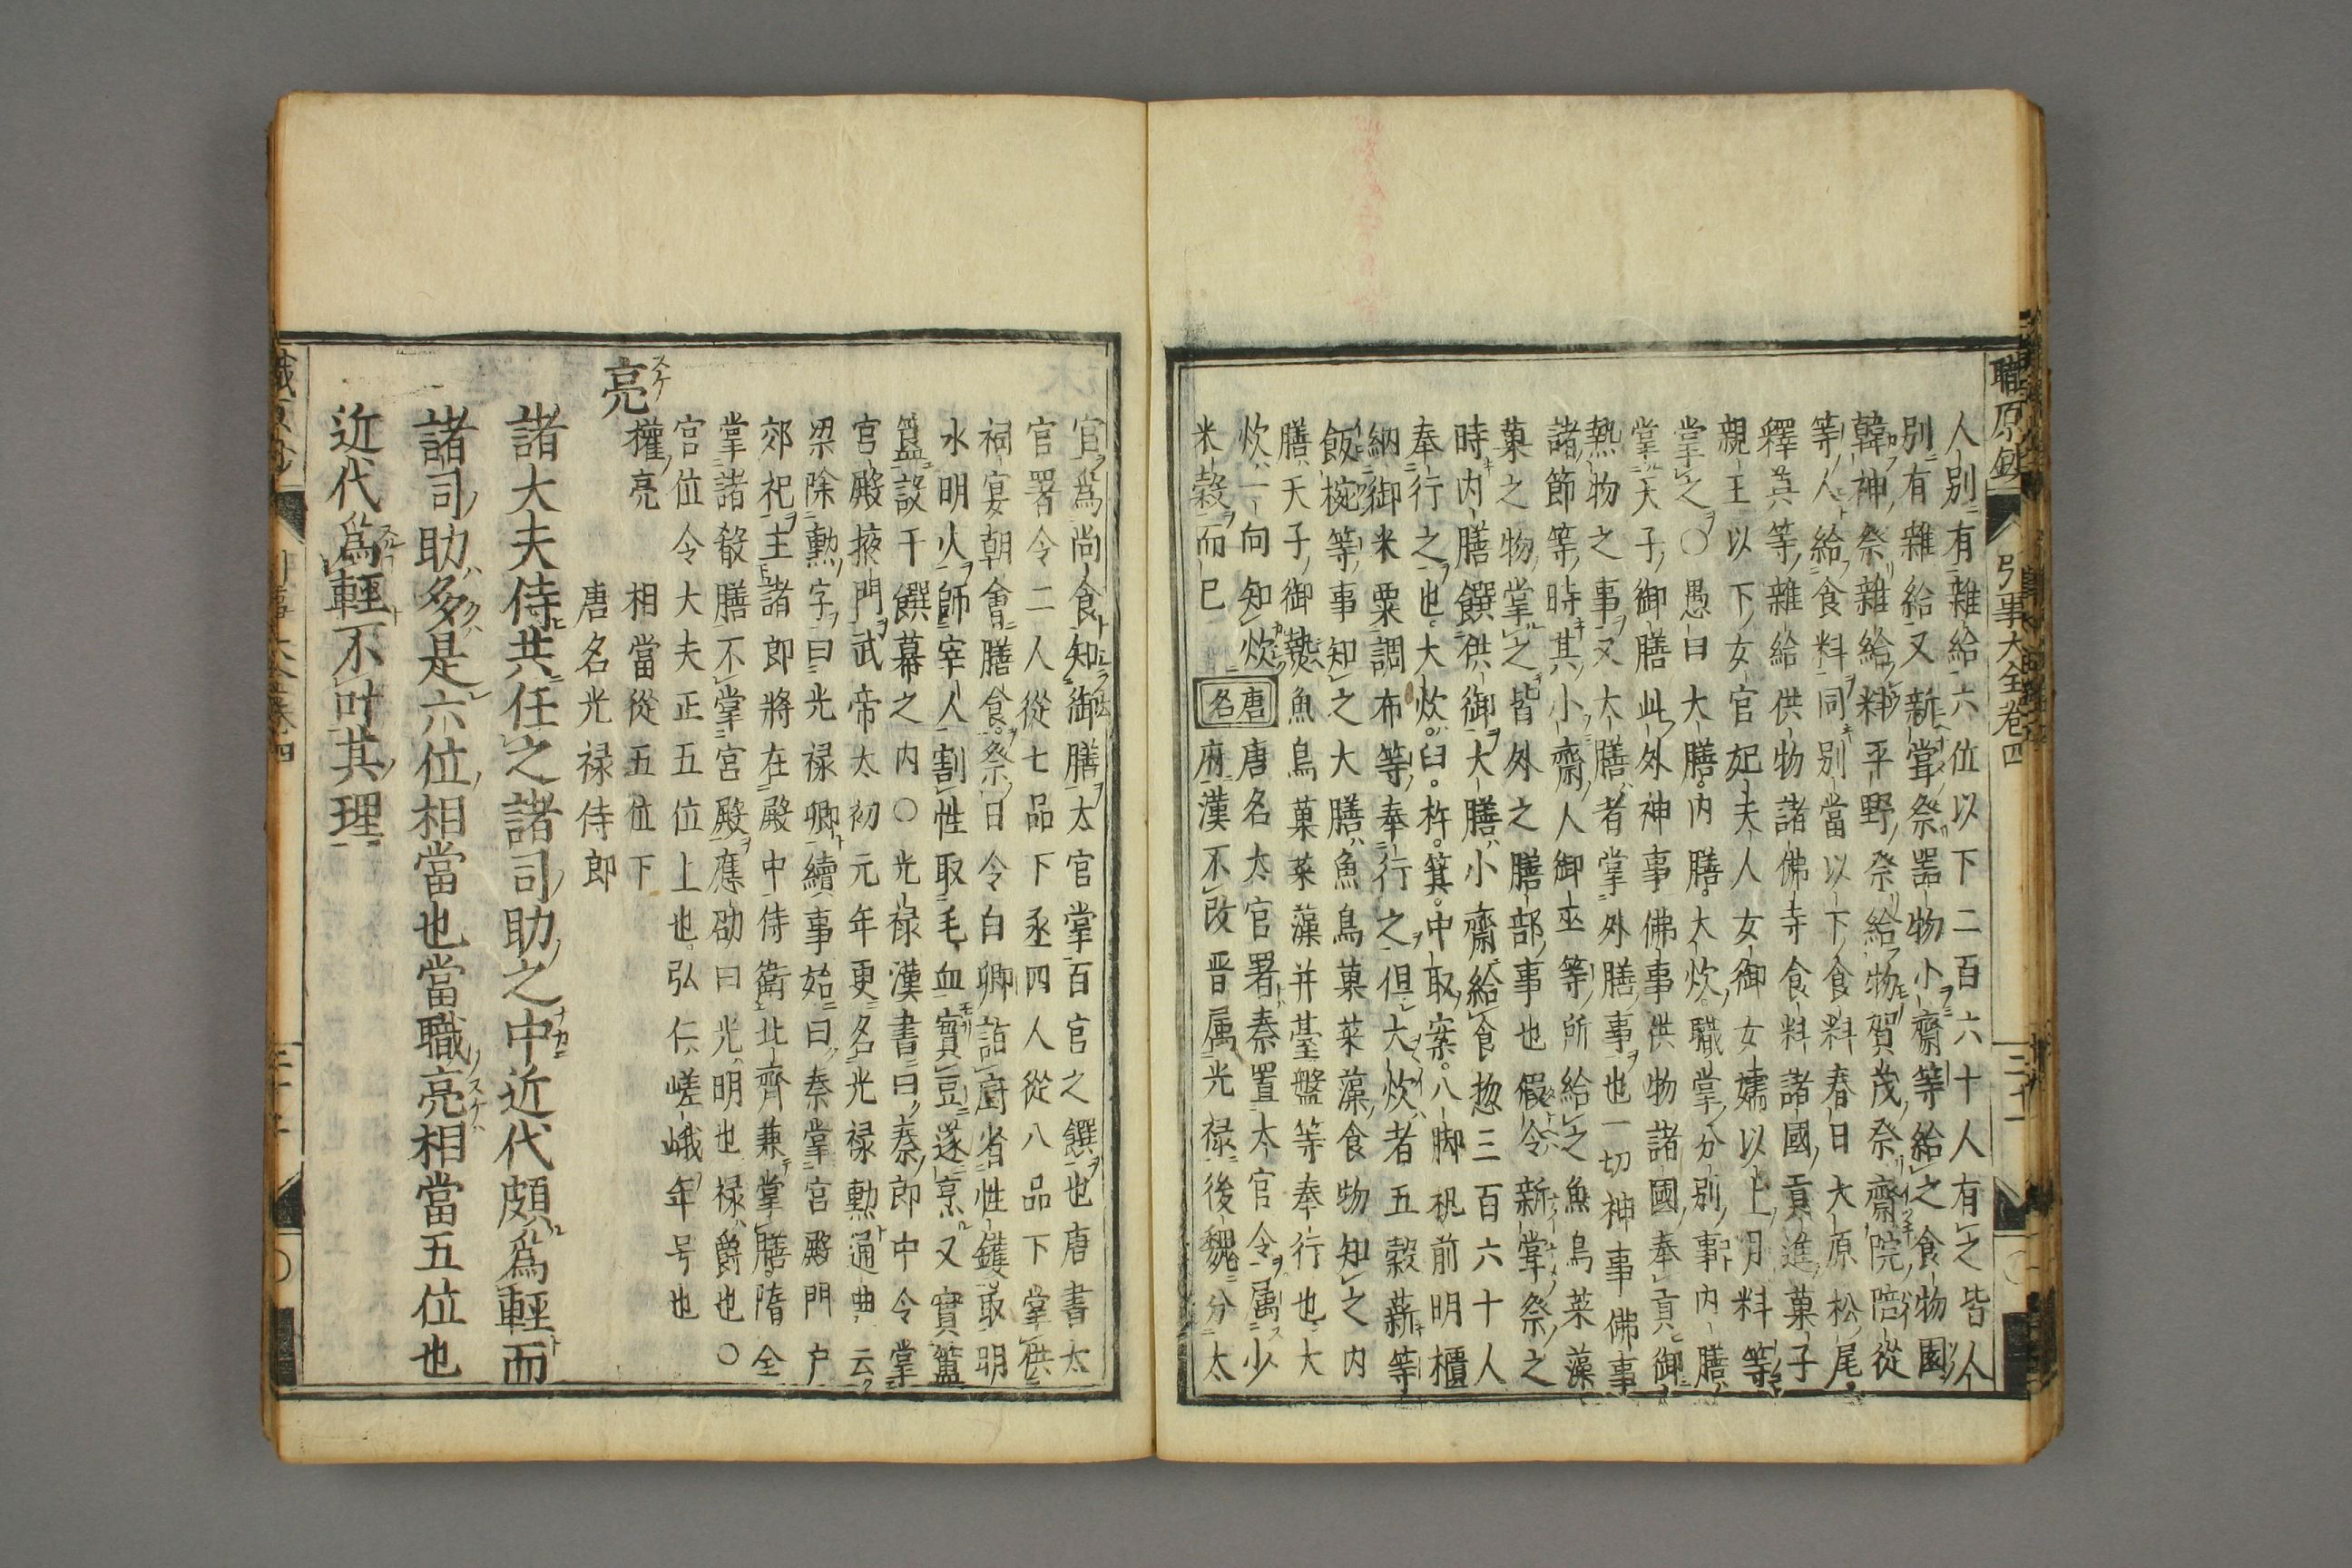 職原鈔 引事大全卷四
人別有雜給六位以下二百六十人有之皆人
別有雜給又新甞祭器物小齋等給之食物園
韓神祭雜給料平野祭給物賀茂祭齋院陪從
等人給食料同別當以下食料春日大原松尾
釋奠等雜給供物諸佛寺食料諸國貢進菓子
親王以下女官妃夫人女御女嬬以上月料等
掌之〇愚曰大膳内膳大炊職掌分別事内膳
掌天子御膳此外神事佛事供物諸國奉貢御
熱物之事又大膳者掌外膳事也一切神事佛事
諸節等時其小齋人御巫等所給之魚鳥菜藻
菓之物掌之皆外之膳部事也假令新甞祭之
時内膳饌供御大膳小齋給食惣三百六十人
奉行之也大炊臼杵箕中取案八脚机前明櫃
納御米粟調布等奉行之但大炊者五穀薪等
飯椀等事知之大膳魚鳥菓菜藻食物知之内
膳天子御熱魚鳥菓菜藻并臺盤等奉行也大
炊一向知炊 唐名 唐名太官署秦置太官令属少
米穀而已 府漢不改晋属光禄後魏分太
官爲尚食知御膳太官掌百官之饌也唐書太
官署令二人從七品下丞四人從八品下掌供
祠宴朝會膳食祭日令白卿詣厨省牲鑊取明
水明火師宰人割牲取毛血實豆遂烹又實簠
簋設于饌幕之内〇光禄漢書曰秦郎中令掌
宮殿掖門武帝太初元年更名光禄勲通典云
梁除勲字曰光禄卿續事始曰秦掌宮殿門户
郊祀主諸郎將在殿中侍衛北齊兼掌膳隋全
掌諸殽膳不掌宮殿應劭曰光明也禄爵也〇
官位令大夫正五位上也弘仁嵯峨年号也
權亮 相當從五位下
亮 唐名光禄侍郎
諸大夫侍共任之諸司助之中近代頗爲輕而
諸司助多是六位相當也當職亮相當五位也
近代爲輕不叶其理